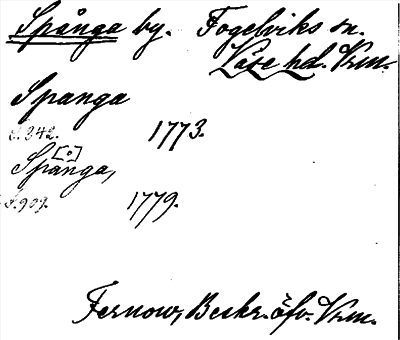 Spånga by. Fogelviks sn.
Väse hd. Vrm.
Spanga
S. 242. 1773.
[o]
Spånga,
S. 909. 1779.
Fernow, Beskr. öfv. Vrm.